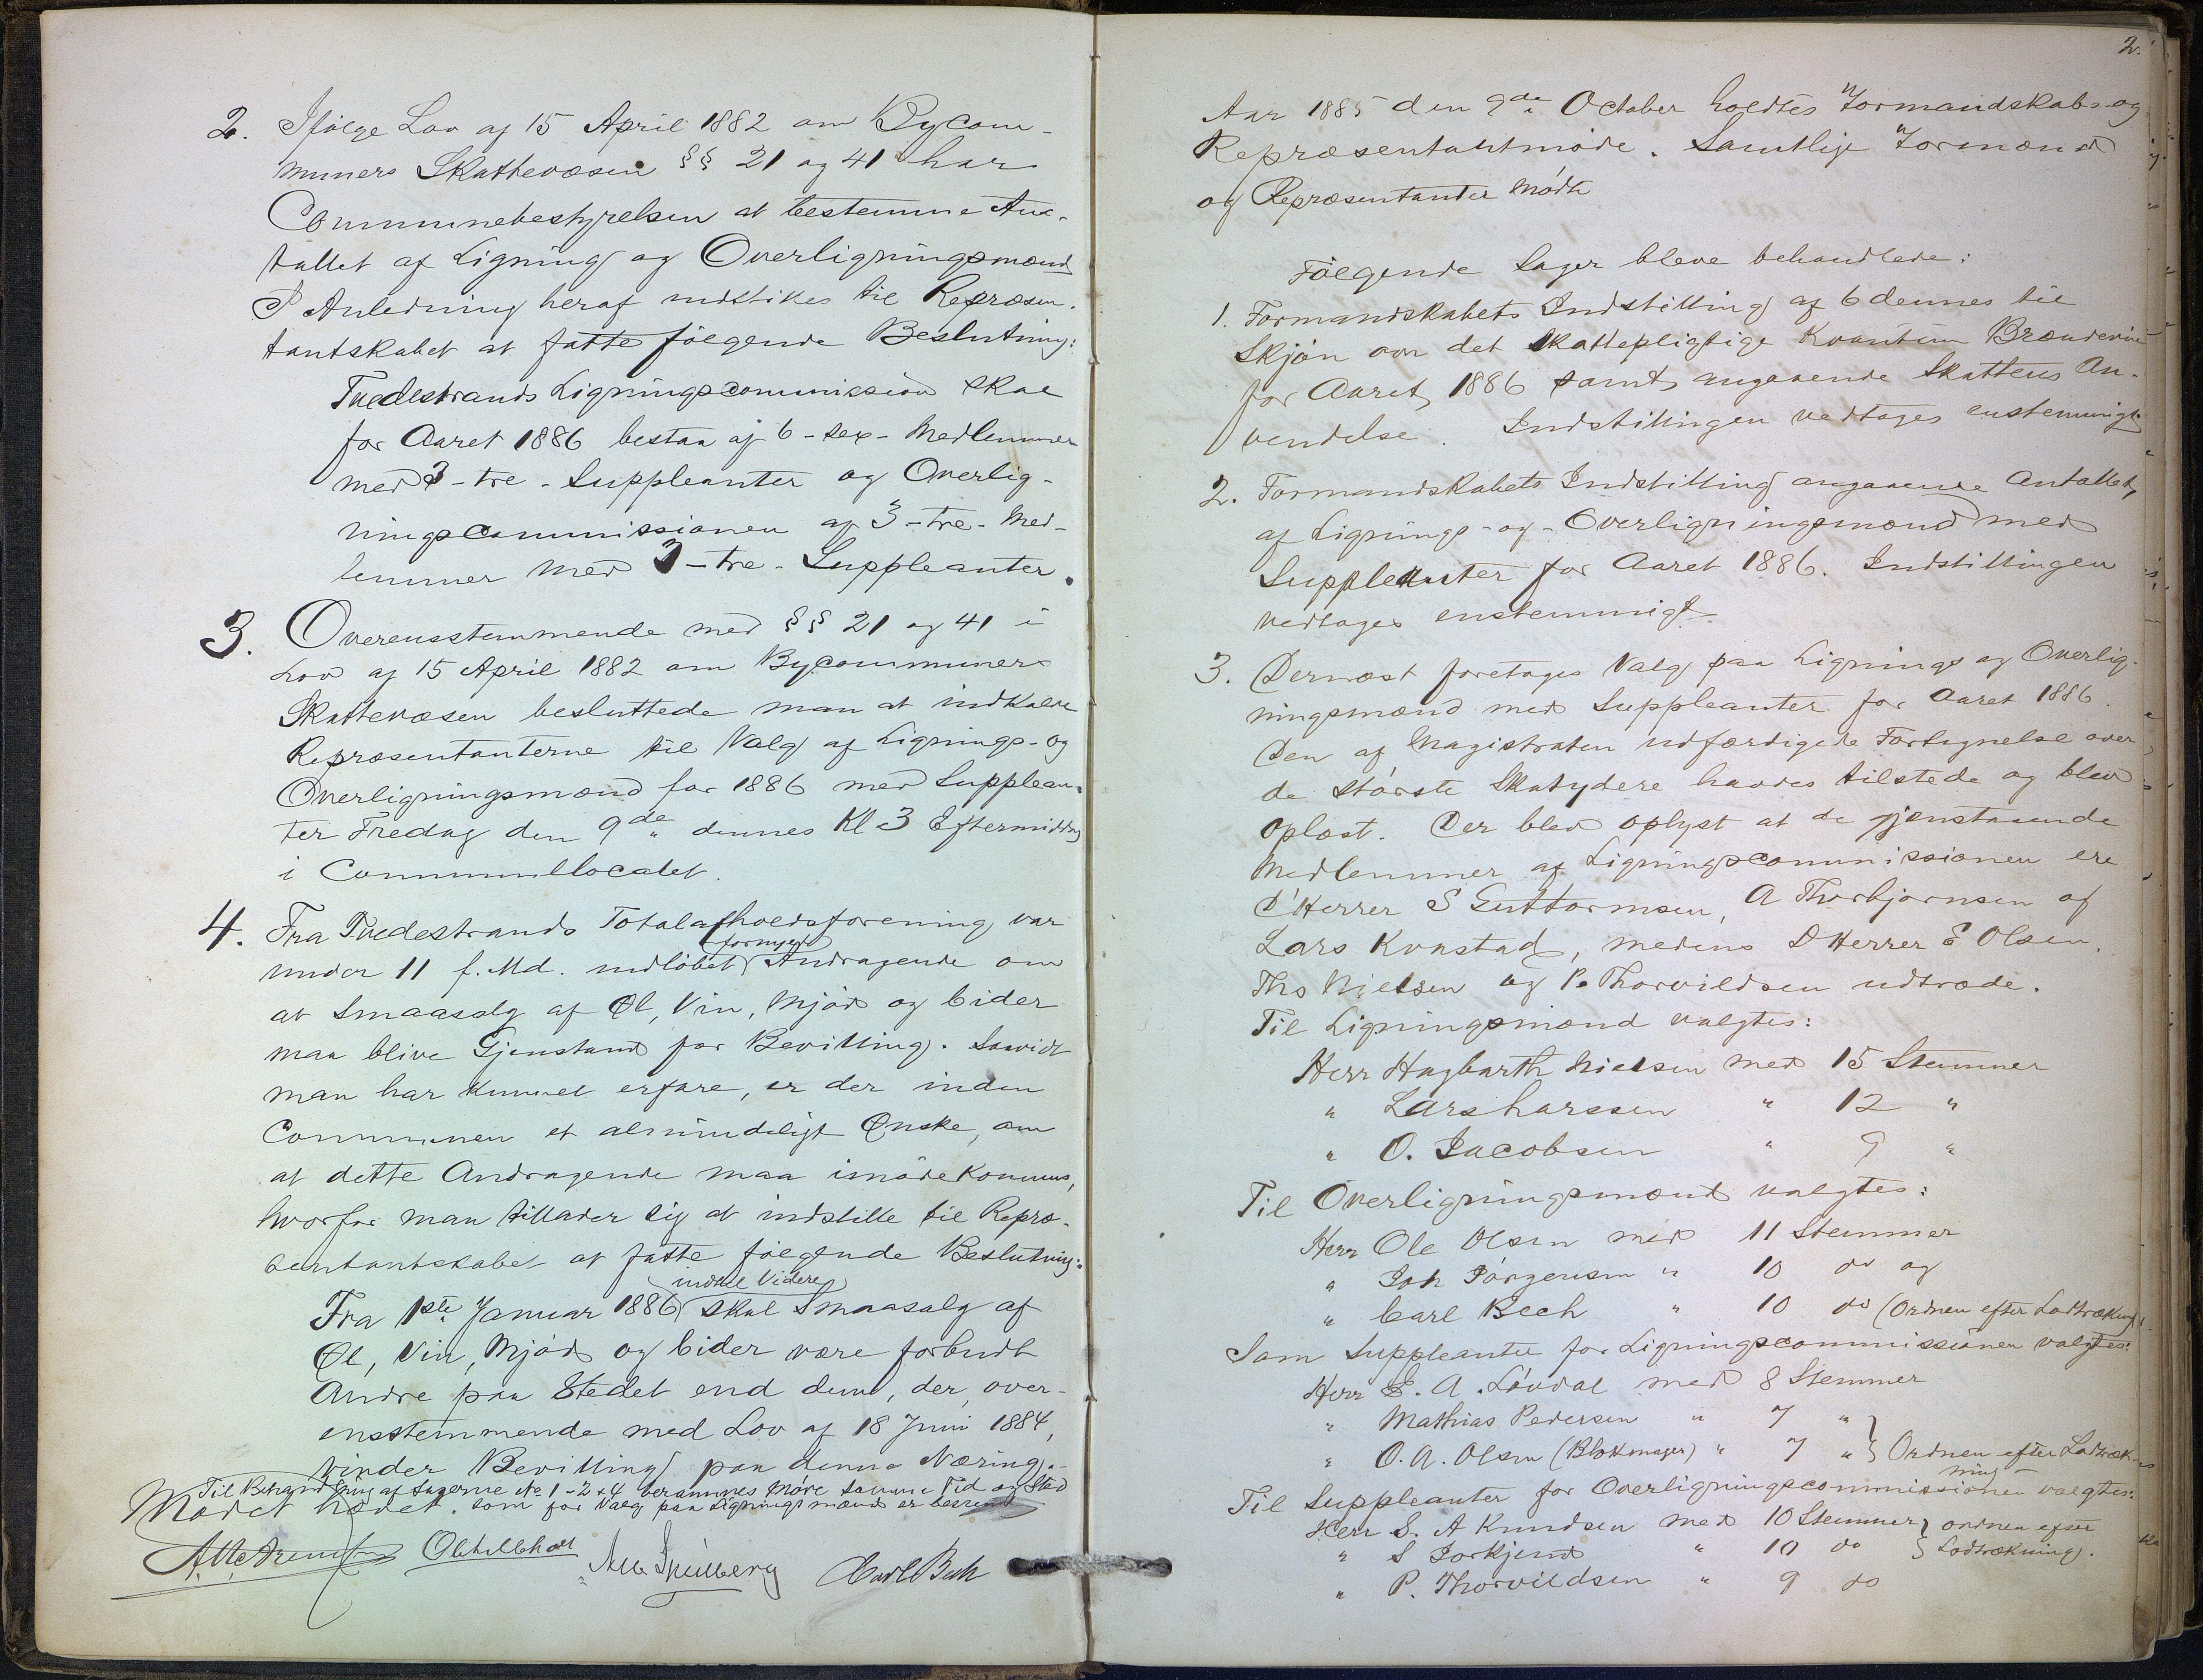 2. Ifølge Lov af 15 April 1882 om Bycom-
muners Skattevæsen §§ 21 og 41 har
Communebestyrelsen at bestemme An-
tallet af Ligning og Overligningsmænd
I Anledning heraf indstilles til Repræsen-
tantskabet at fatte følgende Beslutning:
Tvedestrands Ligningscommission skal
for Aaret 1886 bestaa af 6 - sex - Medlemmer
med 3 - tre - Suppleanter og Overlig-
ningscommissionen af 3 - tre - Med-
lemmer med 3 - tre - Suppleanter.
3. Overensstemmende med §§ 21 og 41 i
Lov af 15 April 1882 om Bycommuners
Skattevæsen besluttede man at indkalde
Repræsentanterne til Valg af Lignings- og
Overligningsmænd for 1886 med Supplean-
ter Fredag den 9de dennes Kl 3 Eftermiddag
i Communellocalet.
4. Fra Tvedestrands Totalafholdsforening var
fornyet
under 11 f. Md. indløbet Andragende om
at Smaasalg af Øl, Vin, Mjød og Cider
maa blive Gjenstand for Bevilling. Saavidt
man har kunnet erfare, er der inden
Communen et almindeligt Ønske, om
at dette Andragende maa imødekommes,
hvorfor man tillader sig at indstille til Repræ-
sentantskabet at fatte følgende Beslutning:
indtil Videre
Fra 1ste Januar 1886 skal Smaasalg af
Øl, Vin, Mjød og Cider være forbudt
Andre paa Stedet end dem, der, over-
ensstemmende med Lov af 18 Juni 1884,
vinder Bevilling paa denne Næring.
Til Behandling af Sagerne No 1-2 & 4 berammes Møde samme Tid og Sted
Mødet hævet. som for Valg paa Ligningsmænd er bestemt
Carl Bech
2.
Aar 1885 den 9de October holdtes Formandskabs- og
Repræsentantmøde. Samtlige Formænd
og Repræsentanter mødte
Følgende Sager bleve behandlede:
1. Formandskabets Indstilling af 6 dennes til
Skjøn om det skattepligtige Kvantum Brændeviin
for Aaret 1886 samt angaaende Skattens An-
vendelse. Indstillingen vedtages enstemmigt
2. Formandskabets Indstilling angaaende Antallet
af Lignings- og Overligningsmænd med
Suppleanter for Aaret 1886. Indstillingen
vedtages enstemmigt
3. Dernæst foretages Valg paa Lignings og Overlig-
ningsmænd med Suppleanter for Aaret 1886.
Den af Magistraten udfærdigede Fortegnelse over
de største Skatydere havdes tilstede og blev
oplæst. Der blev oplyst at de gjenstaaende
Medlemmer af Ligningscommissionen ere
D'Herrer S Guttormsen, A Thorbjørnsen og
Lars Kvastad, medens D Herrer E Olsen,
Ths Nielsen og P. Thorvildsen udtræde.
Til Ligningsmænd valgtes:
Herr Hagbarth Nielsen med 15 Stemmer
" Lars Larssen " 12 "
" O. Jacobsen " 9 "
Til Overligningsmænd valgtes:
Herr Ole Olsen med 11 Stemmer
" Joh Jørgensen " 10 do og
" Carl Bech " 10 do (Ordnen efter Lodtrækning)
Som Suppleanter for Ligningscommissionen valgtes:
Herr E. A. Løvdal med 8 Stemmer
" Mathias Pedersen " 7 "
" O. A. Olsen (Blokmager) " 7 " } Ordnen efter Lodtræk-
ning
Til Suppleanter for Overligningscommissionen valgtes:
Herr S. A Knudsen med 10 Stemmer } ordnen efter
" S Torkjend " 10 do } Lodtrækning.
" P. Thorvildsen " 9 do